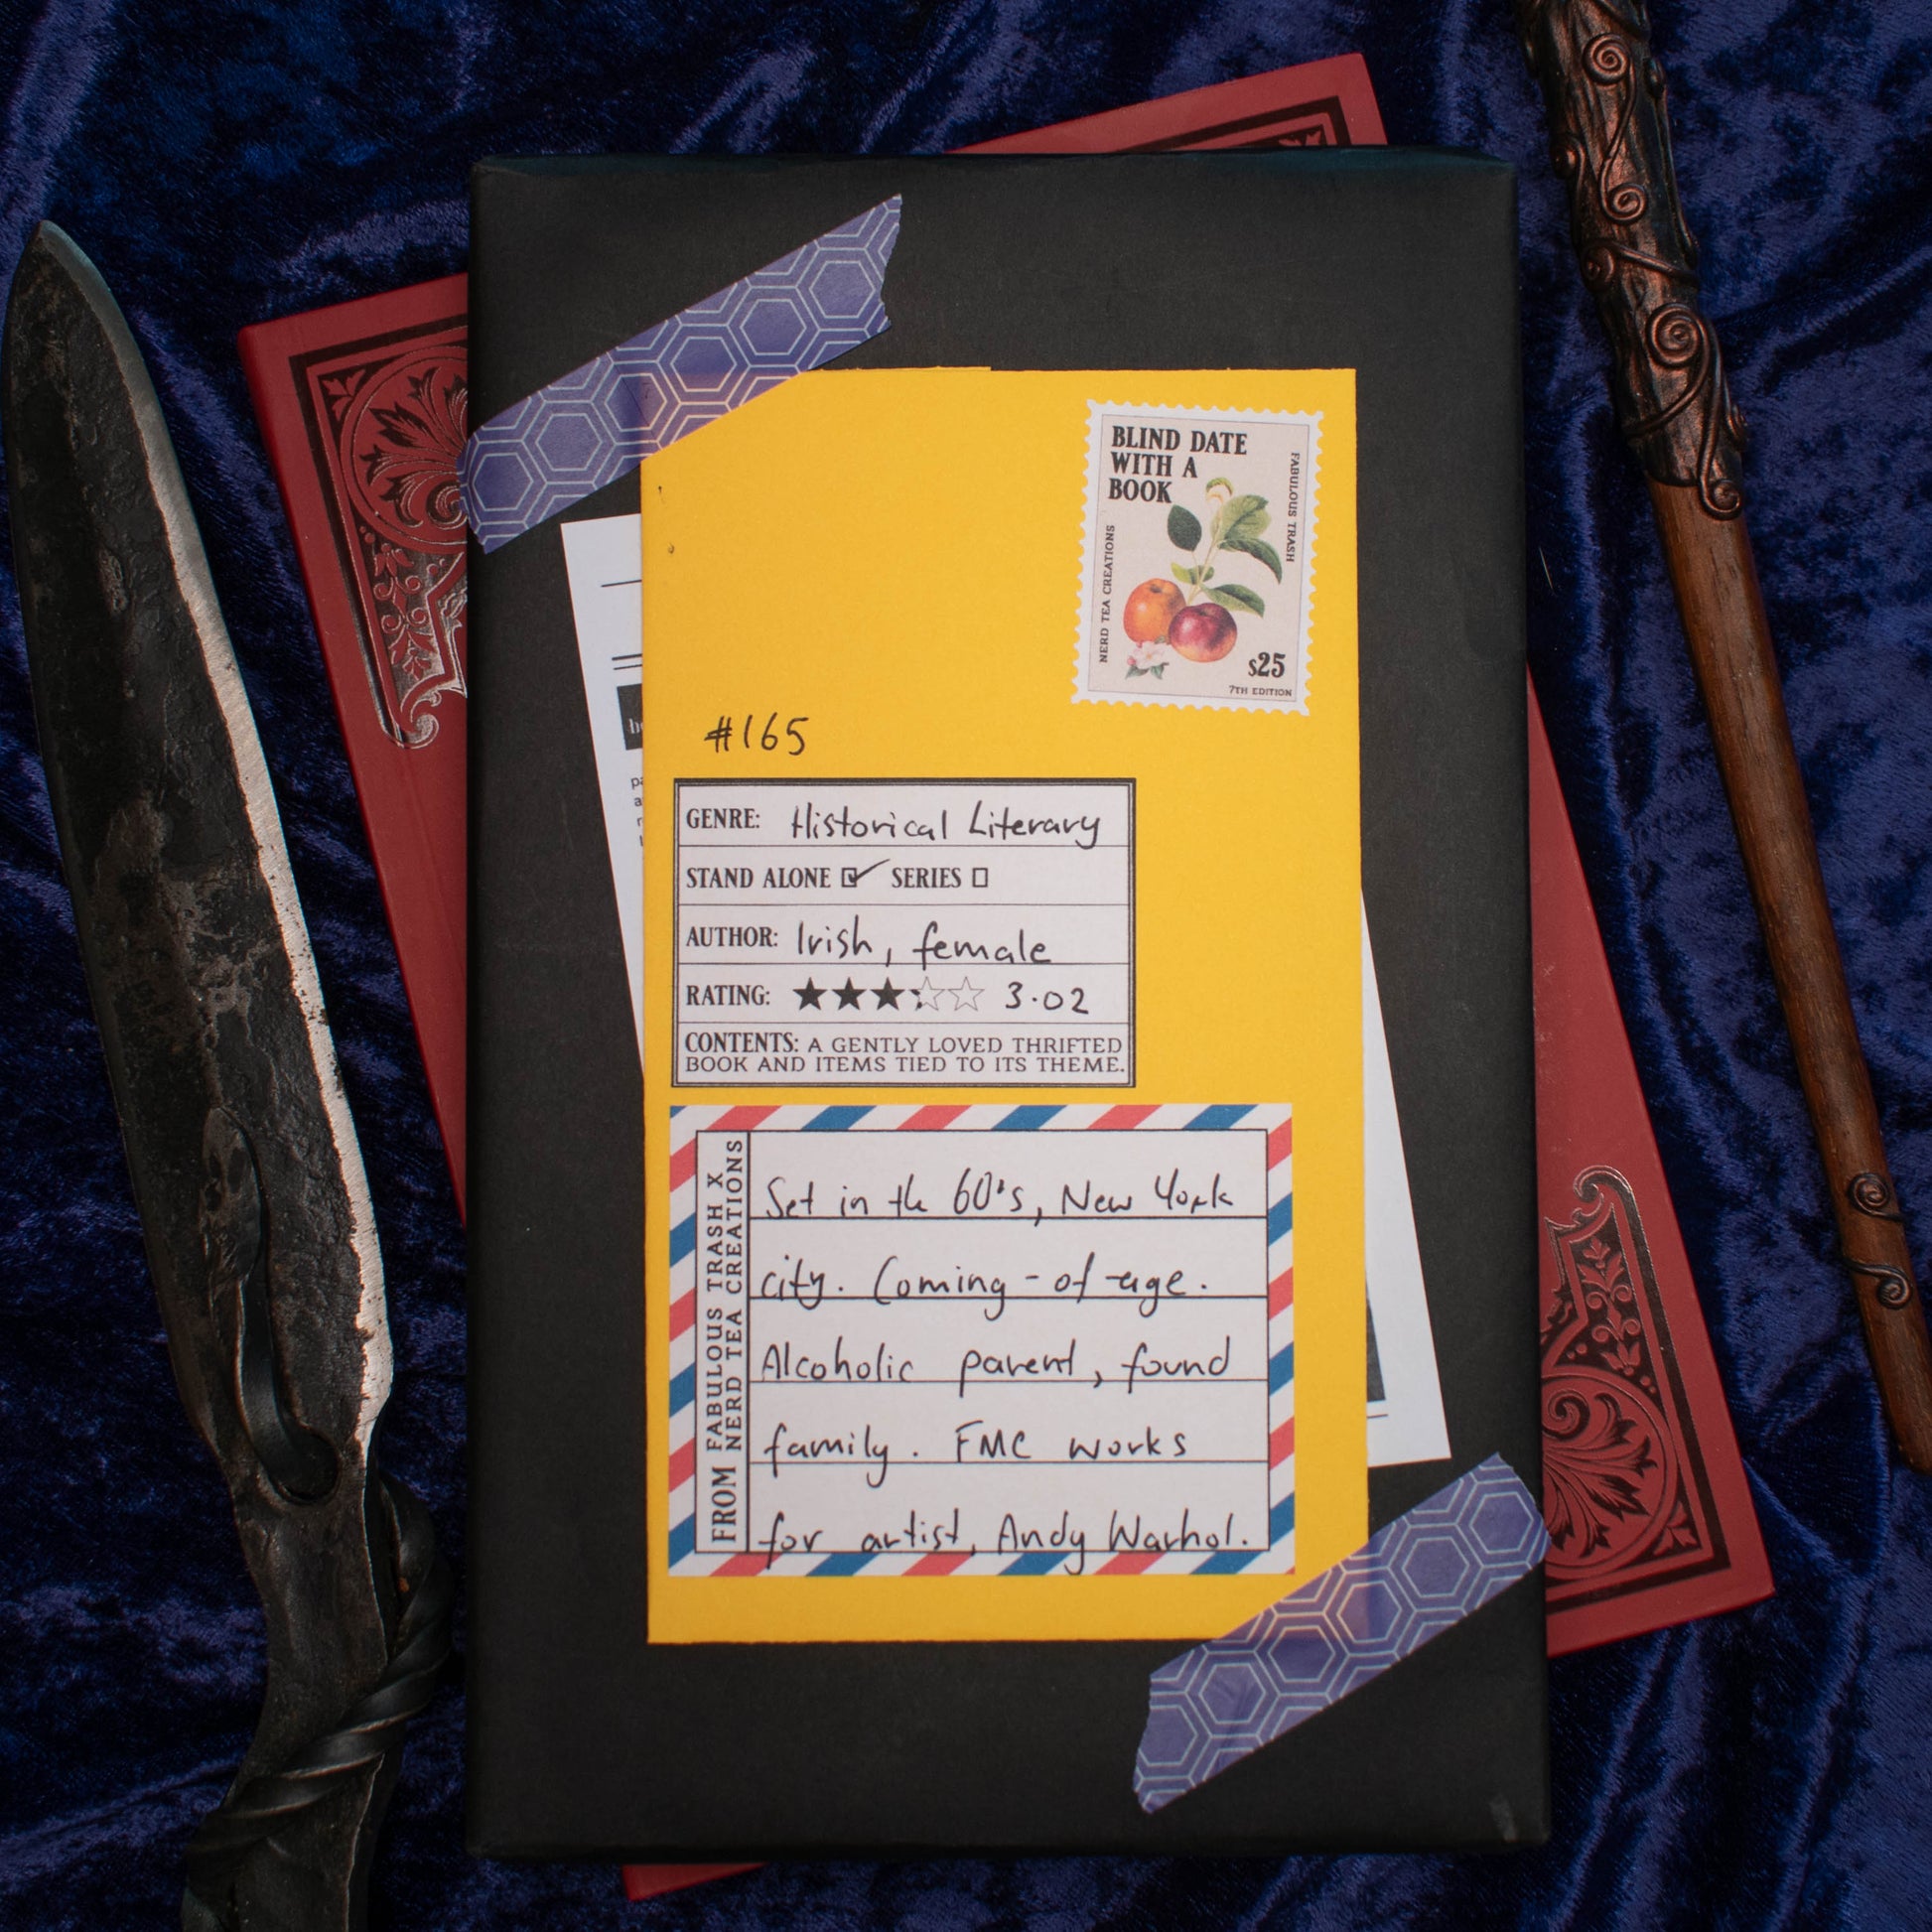 BLIND DATE
WITH A
BOOK
FABULOUS TRASH
NERD TEA CREATIONS
$25
7TH EDITION
#165
GENRE: Historical Literary
STAND ALONE ☑ SERIES ☐
AUTHOR: Irish, female
RATING: ★★★☆☆ 3.02
CONTENTS: A GENTLY LOVED THRIFTED
BOOK AND ITEMS TIED TO ITS THEME.
FROM FABULOUS TRASH X
NERD TEA CREATIONS
Set in the 60's, New York
city. Coming-of-age.
Alcoholic parent, found
family. FMC works
for artist, Andy Warhol.